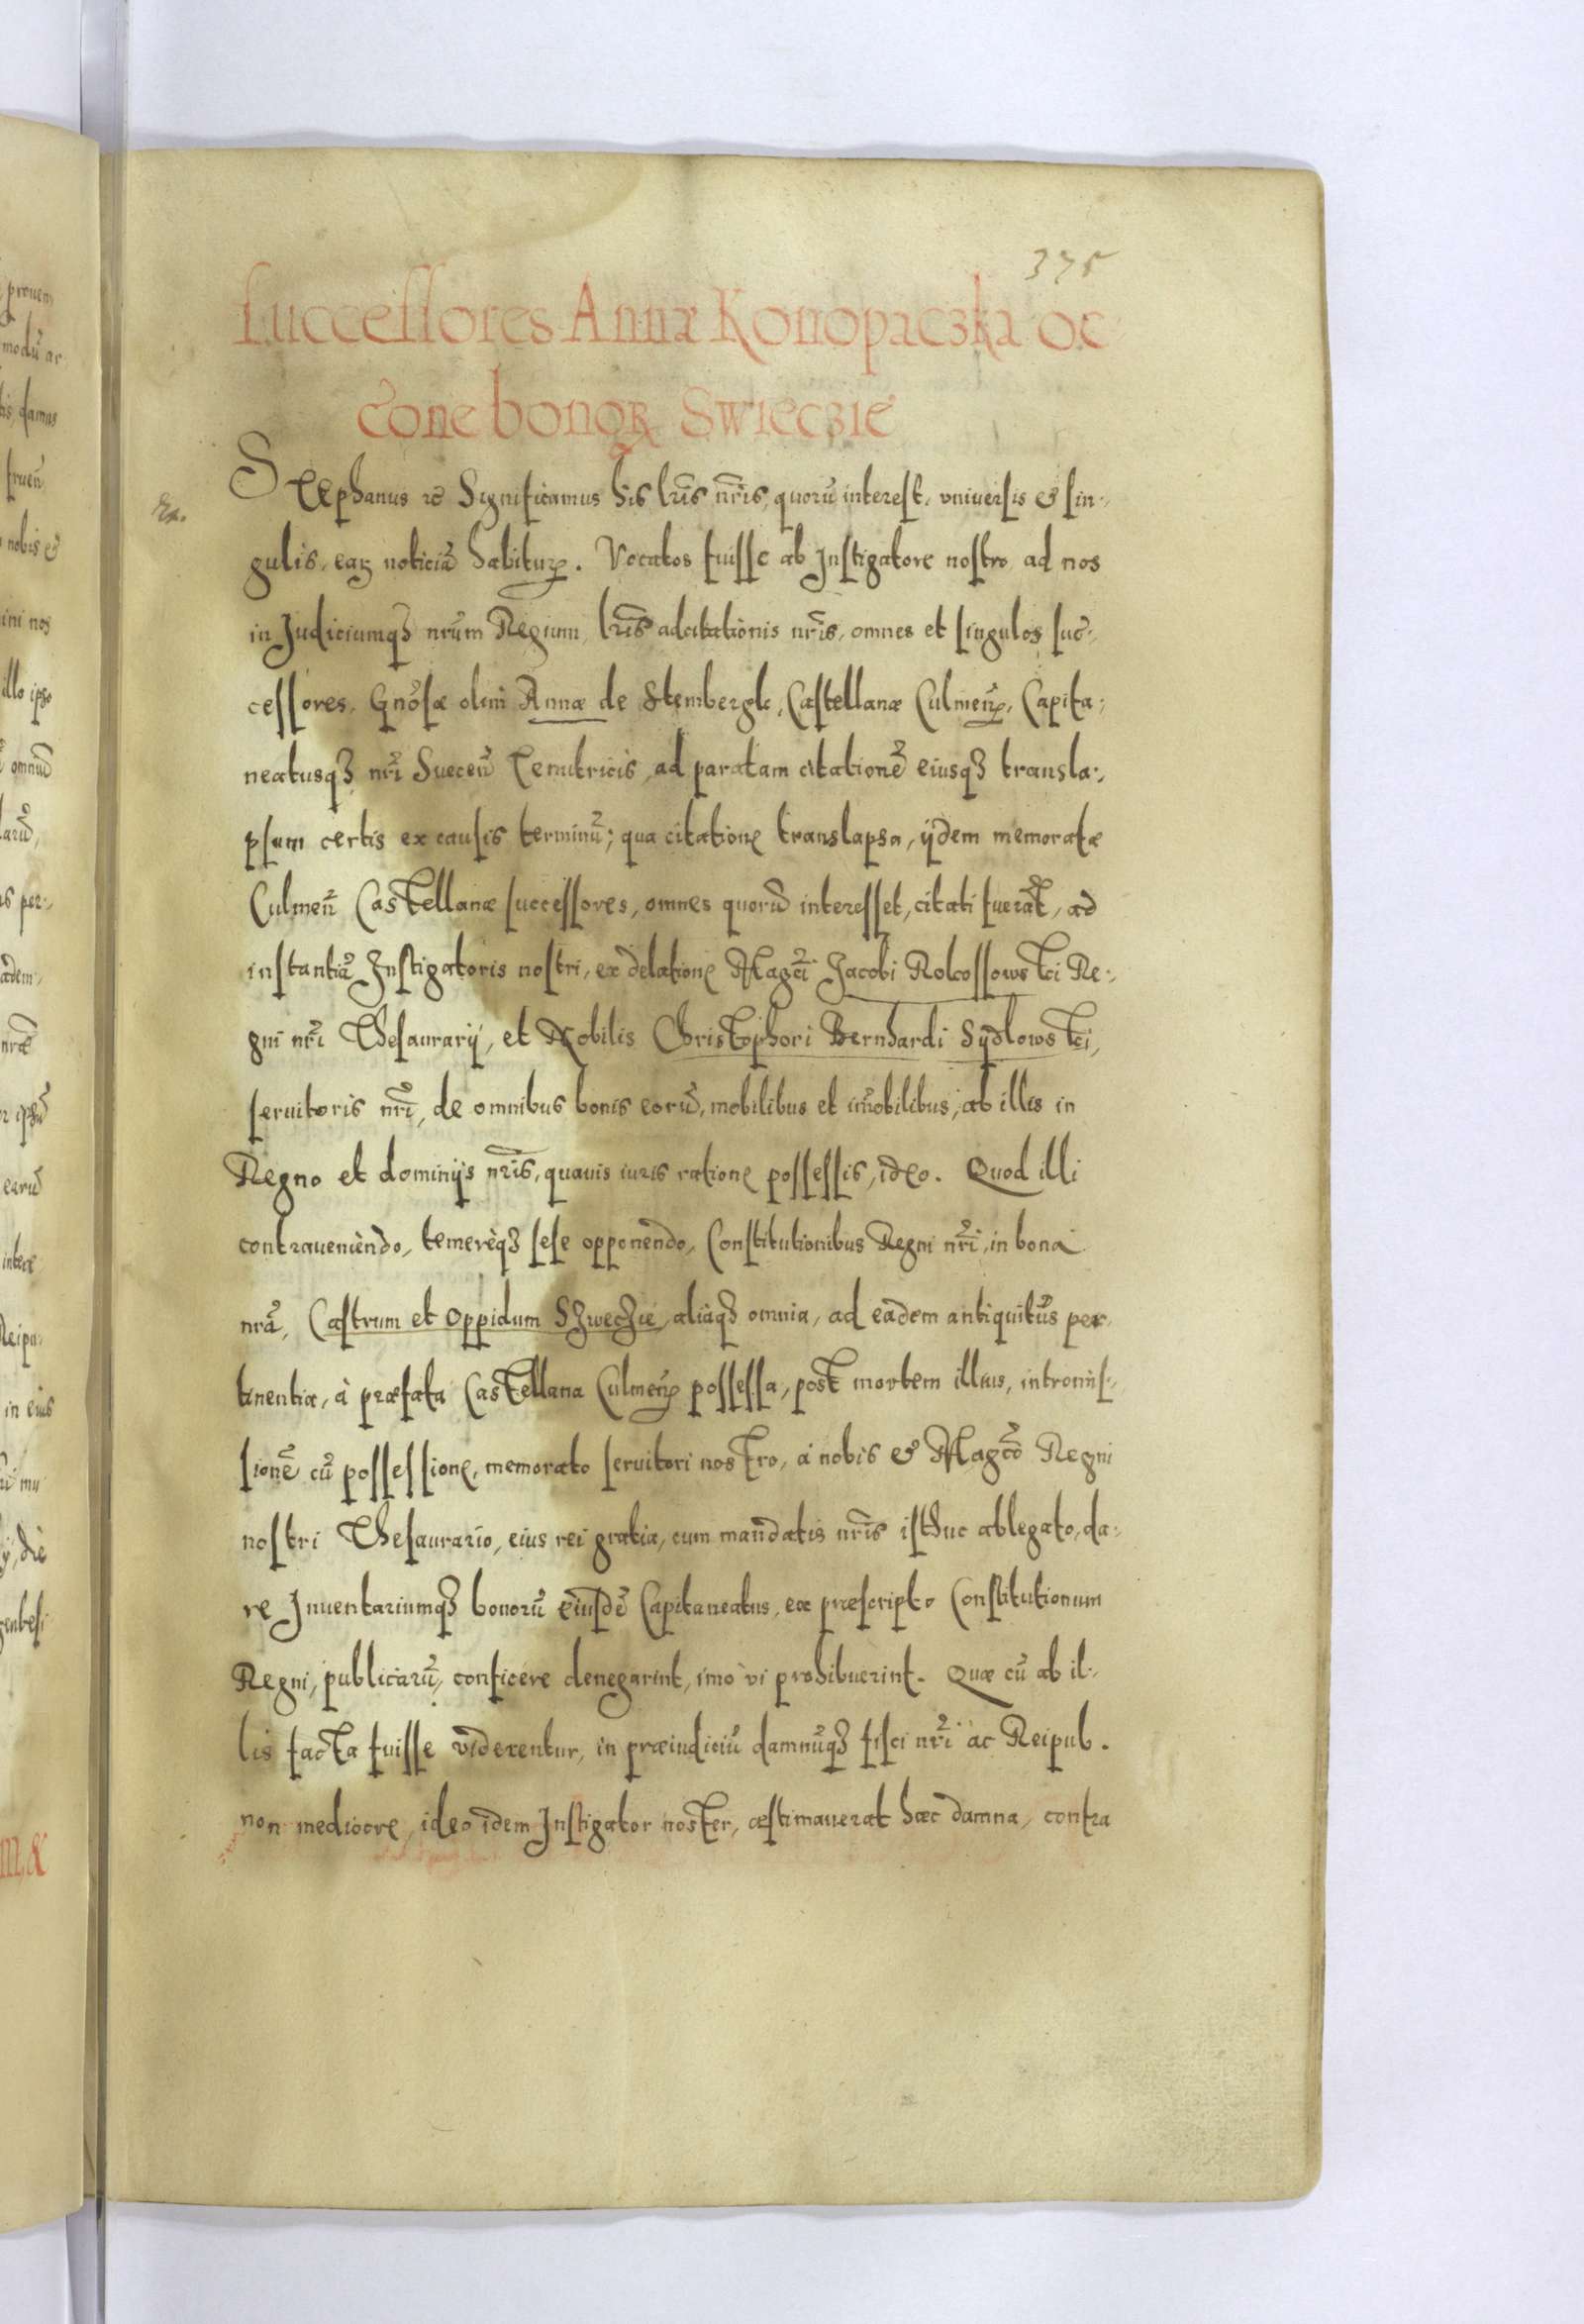 375
successores Annæ Konopaczka oc
cōne bonoꝝ Swieczie
Stephanus ꝛc Significamus his lr̃is nr̃is, quorũ interest, vniuersis & sin-
gulis, eaꝝ noticiã habituꝝ. Vocatos fuisse ab Instigatore nostro ad nos
in Judiciumqȝ nr̃um Regium, lr̃is adcitationis nr̃is, omnes et singulos suc-
cessores, Gnõsæ olim Annæ de Stembergk, Castellanæ Culmeñ, Capita-
neatusqȝ nr̃i Sueceñ Tenutricis, ad paratam citationẽ eiusqȝ transla-
psum certis ex causis terminũ; qua citatione translapsa, ijdem memoratæ
Culmeñ Castellanæ successores, omnes quorũ interesset, citati fuerãt, ad
instantiã Instigatoris nostri, ex delatione Magc̃i Jacobi Rokossowski Re-
gni nr̃i Thesaurarij, et Nobilis Christophori Bernhardi Sydlowski,
seruitoris nr̃i, de omnibus bonis eorũ, mobilibus et im̃obilibus, ab illis in
Regno et dominijs nr̃is, quauis iuris ratione possessis, ideo. Quod illi
contraueniendo, temereqȝ sese opponendo, Constitutionibus Regni nr̃i, in bona
nr̃a, Castrum et oppidum Szweczie, aliaqȝ omnia, ad eadem antiquitus per-
tinentia, à præfata Castellana Culmeñ possessa, post mortem illius, intromis-
sionẽ cũ possessione, memorato seruitori nostro, a nobis & Magc̃o Regni
nostri Thesaurario, eius rei gratia, cum mandatis nr̃is isthuc ablegato, da-
re Inuentariumqȝ bonorũ eiusdẽ Capitaneatus, ex præscripto Constitutionum
Regni, publicarũ, conficere denegarint, imo vi prohibuerint. Quæ cũ ab il-
lis facta fuisse viderentur, in præiudiciũ damnũqȝ fisci nr̃i ac Reipub.
non mediocre, ideo idem Instigator noster, æstimauerat hæc damna, contra